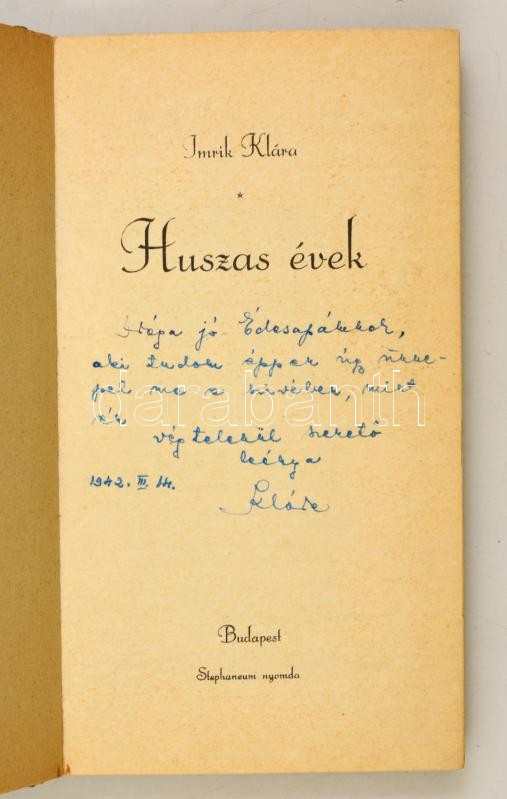 Imrik Klára
*
Huszas évek
Drága jó Édesapámnak,
aki tudom éppen úgy ünne-
pel ma a szivében, mint
én
végtelenül szerető
leánya
1942. III. 14.
Klára
darabanth
Budapest
Stephaneum nyomda